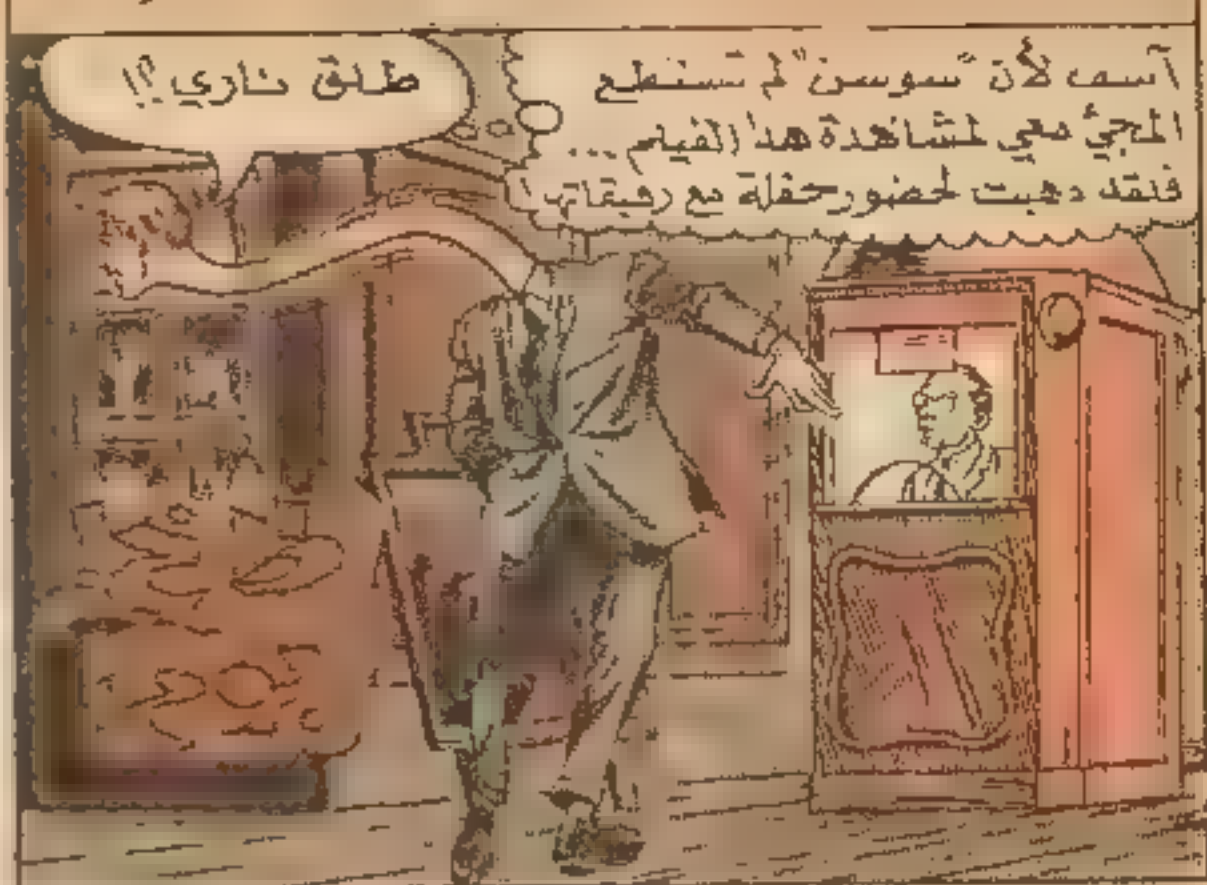 آسف لأن "سوسن" لم تستطع
المجئ معي لمشاهدة هذا الفيلم ...
فلقد ذهبت لحضور حفلة مع رفيقاتها
طلق ناري ؟!